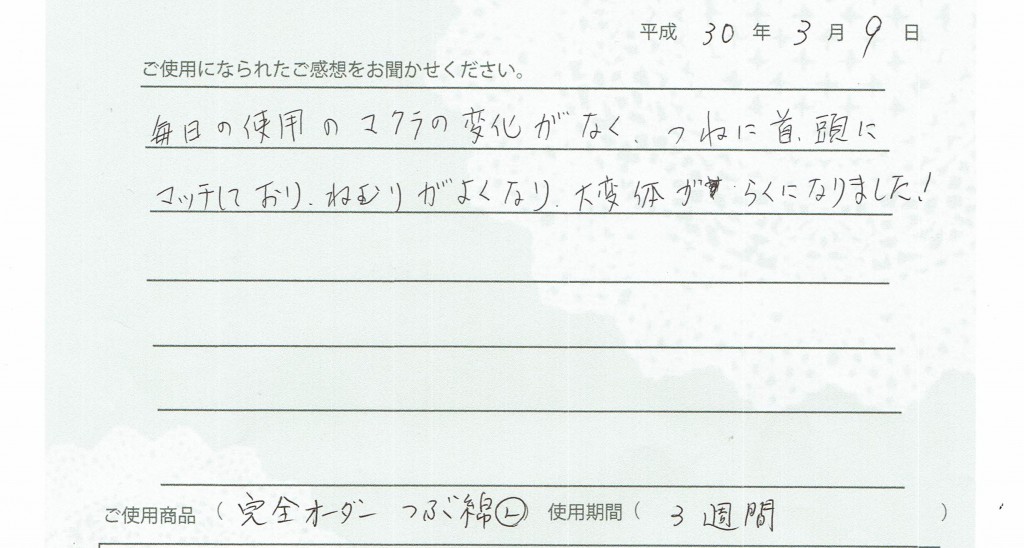 平成 30 年 3 月 9 日
ご使用になられたご感想をお聞かせください。
毎日の使用のマクラの変化がなく、つねに首、頭に
マッチしており、ねむりがよくなり、大変体が らくになりました!
ご使用商品 ( 完全オーダー つぶ綿 ) 使用期間 ( 3 週間 )